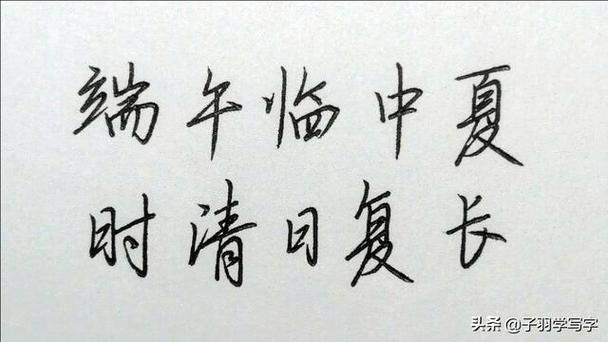 端午临中夏
时清日复长
头条 @子羽学写字